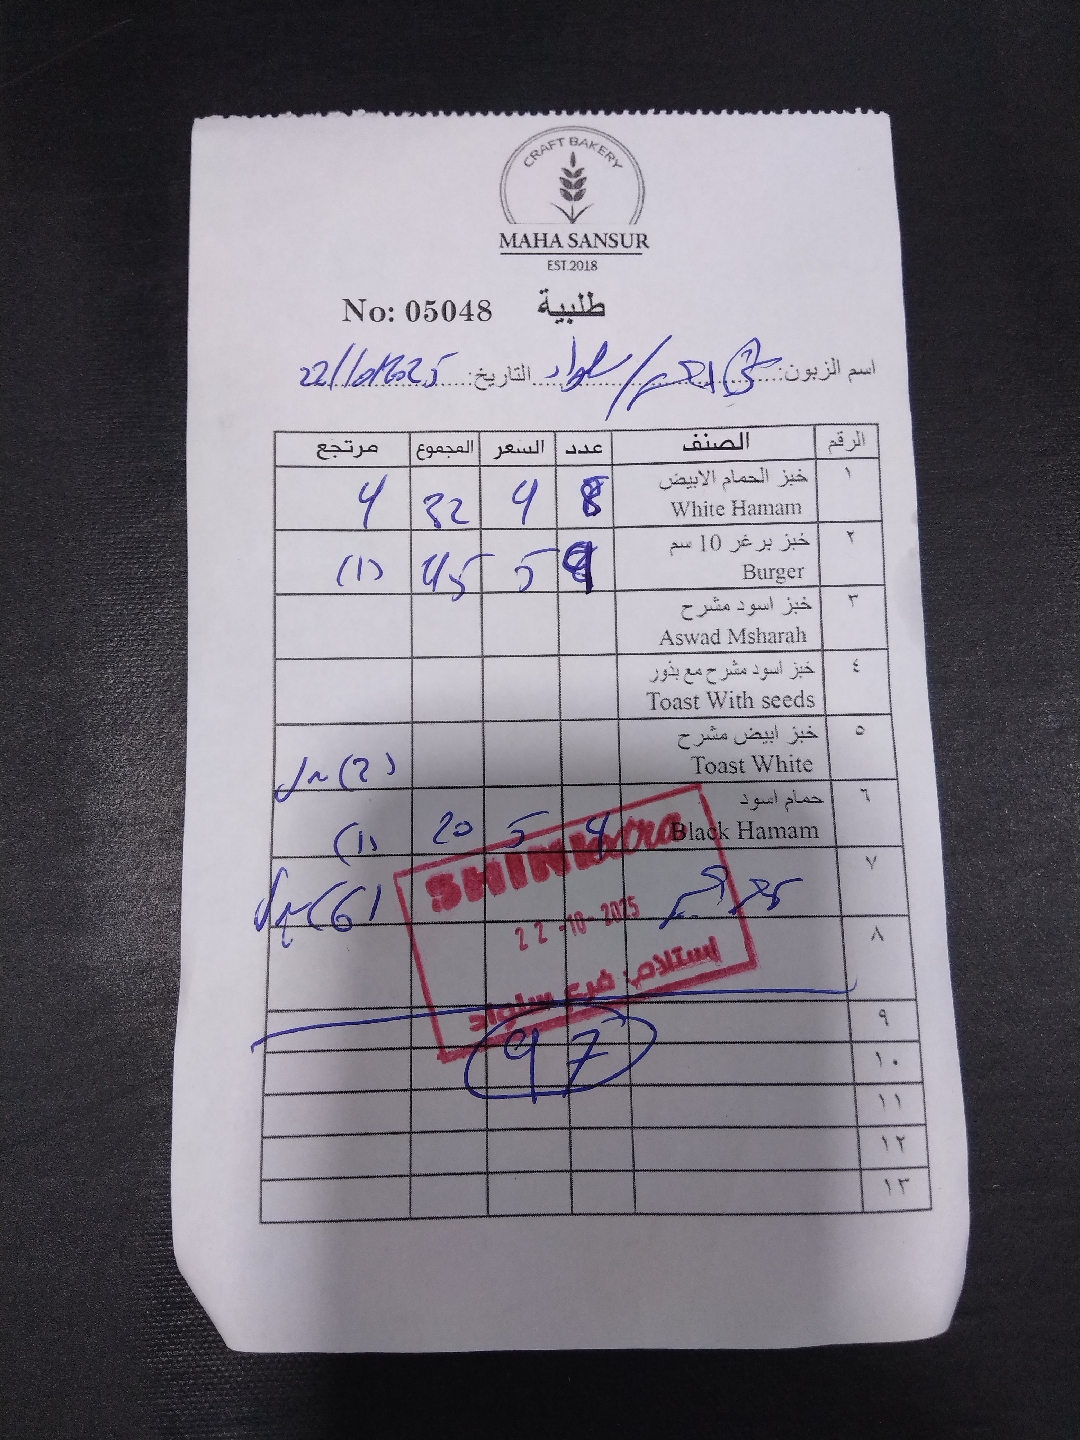 CRAFT BAKERY
MAHA SANSUR
EST.2018
No: 05048 طلبية
اسم الزبون: التاريخ: 22/10/2025
الرقم الصنف عدد السعر المجموع مرتجع
١ خبز الحمام الابيض 8 4 32 4
White Hamam
٢ خبز برغر 10 سم 9 5 45 (1)
Burger
٣ خبز اسود مشرح
Aswad Msharah
٤ خبز اسود مشرح مع بذور
Toast With seeds
٥ خبز ابيض مشرح (2)
Toast White
٦ حمام اسود 4 5 20 (1)
Black Hamam
٧ (6)
SHINI extra
22-10-2025
٨
استلام فرع سلواد
٩
97
١٠
١١
١٢
١٣